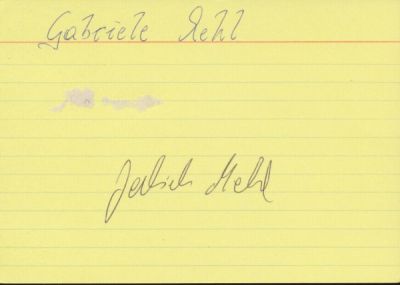 Gabriele Mehl
Gabriele Mehl